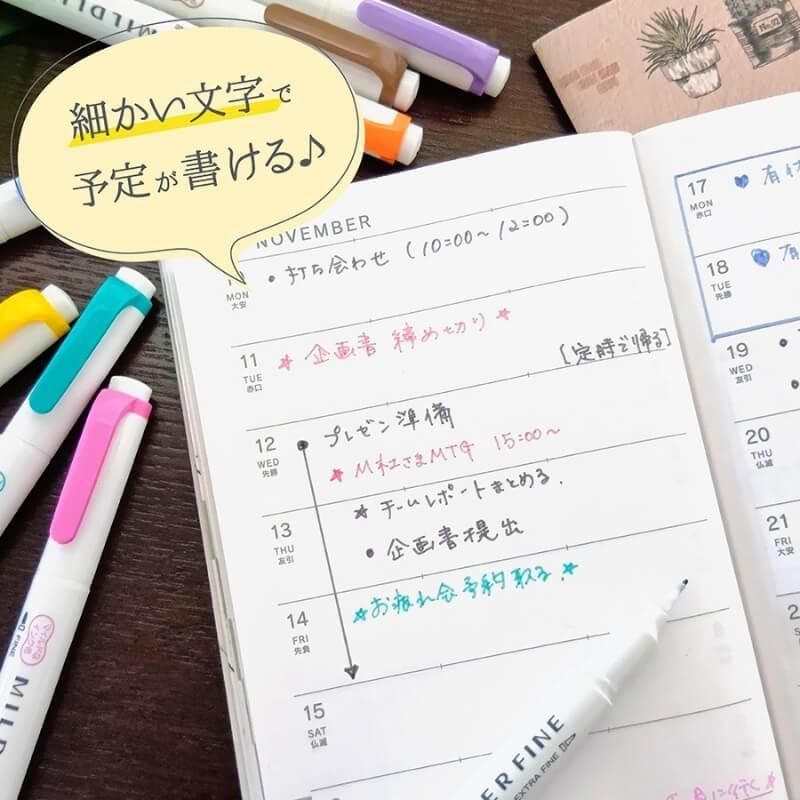 細かい文字で
予定が書ける♪
MILDLI
NOVEMBER
MON
大安
• 打ち会わせ (10:00~12:00)
11
TUE
赤口
★ 企画書 締め切り ★
[定時で帰る]
12
WED
先勝
プレゼン準備
★ M社さまMTG 15:00~
13
THU
友引
★ チームレポートまとめる.
• 企画書提出
14
FRI
先負
★お疲れ会予約取る.★
15
SAT
仏滅
17
MON
赤口
18
TUE
先勝
19
WED
友引
20
THU
仏滅
21
FRI
大安
SAT
No.02
マイルドな
インク色
FINE
MILD
ERFINE
EXTRA FINE